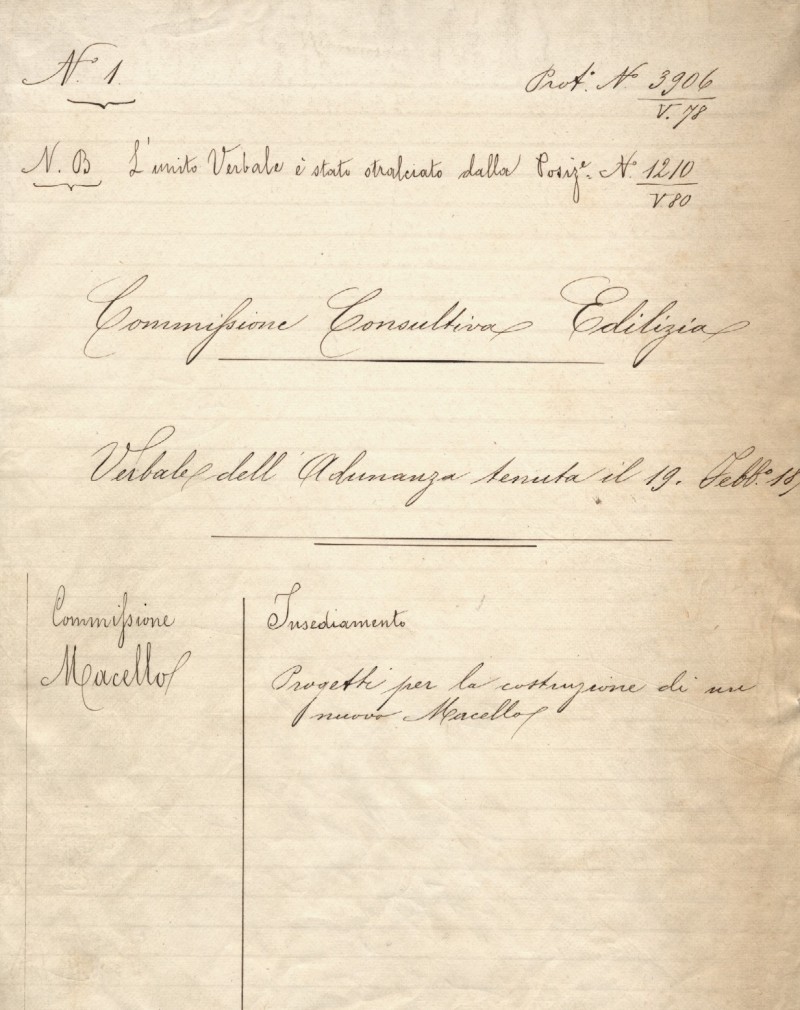 N.º 1.
Prot.º Nº 3906
V. 78
N. B L'unito Verbale è stato stralciato dalla Posiz.e Nº 1210
V. 80
Commissione Consultiva Edilizia
Verbale dell'Adunanza tenuta il 19. Febb.º 18
Commissione
Macello
Insediamento
Progetti per la costruzione di un
nuovo Macello